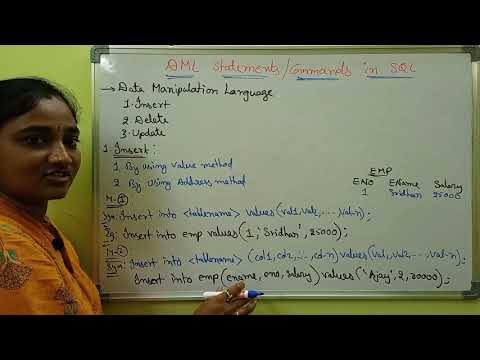 DML Statements/Commands in SQL
→ Data Manipulation Language
1. Insert
2. Delete
3. Update
1. Insert:
1. By using value method
2. By Using Address method
EMP
ENO EName Salary
1 Sridhar 25000
M-①
Syn: Insert into <tablename> values(val1, val2, ..., val-n);
Eg: Insert into emp values(1, 'Sridhar', 25000);
M-②
Syn: Insert into <tablename> (col1, col2, ..., col-n) values(val1, val2, ..., val-n);
Insert into emp(ename, eno, salary) values('Ajay', 2, 30000);